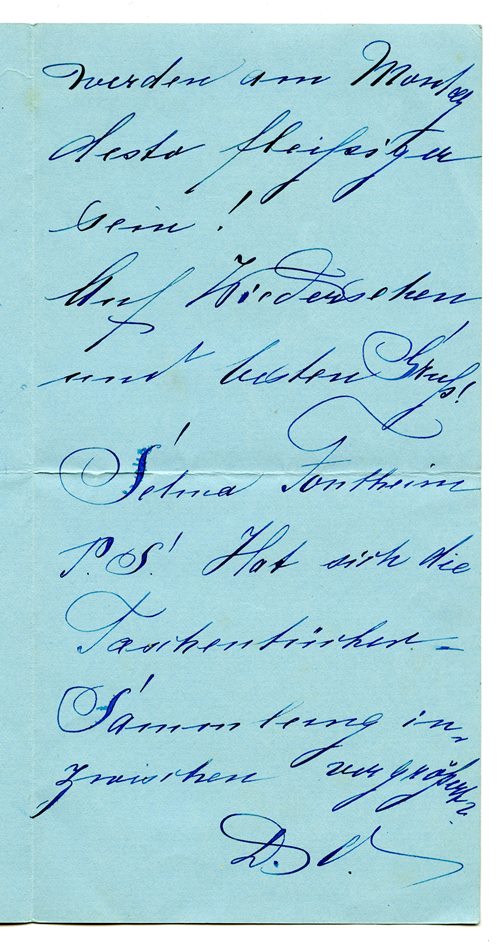 werden am Montag
desto fleißiger
sein!
Auf Wiedersehen
und besten Gruß!
Selma Fontheim
P.S! Hat sich die
Taschentücher-
Sammlung in-
zwischen vergrößert?
D. O.